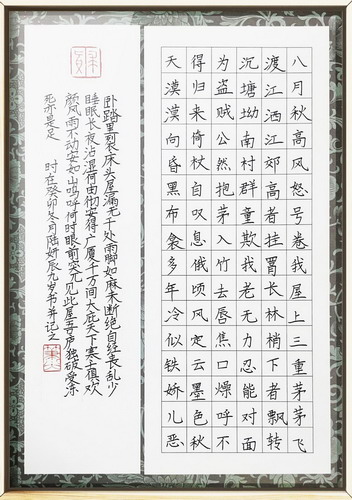 八月秋高风怒号卷我屋上三重茅茅飞
渡江洒江郊高者挂罥长林梢下者飘转
沉塘坳南村群童欺我老无力忍能对面
为盗贼公然抱茅入竹去唇焦口燥呼不
得归来倚杖自叹息俄顷风定云墨色秋
天漠漠向昏黑布衾多年冷似铁娇儿恶
卧踏里裂床头屋漏无干处雨脚如麻未断绝自经丧乱少
睡眠长夜沾湿何由彻安得广厦千万间大庇天下寒士俱欢
颜风雨不动安如山呜呼何时眼前突兀见此屋吾庐独破受冻
死亦是足 时在癸卯冬月陆妍辰九岁书并记之